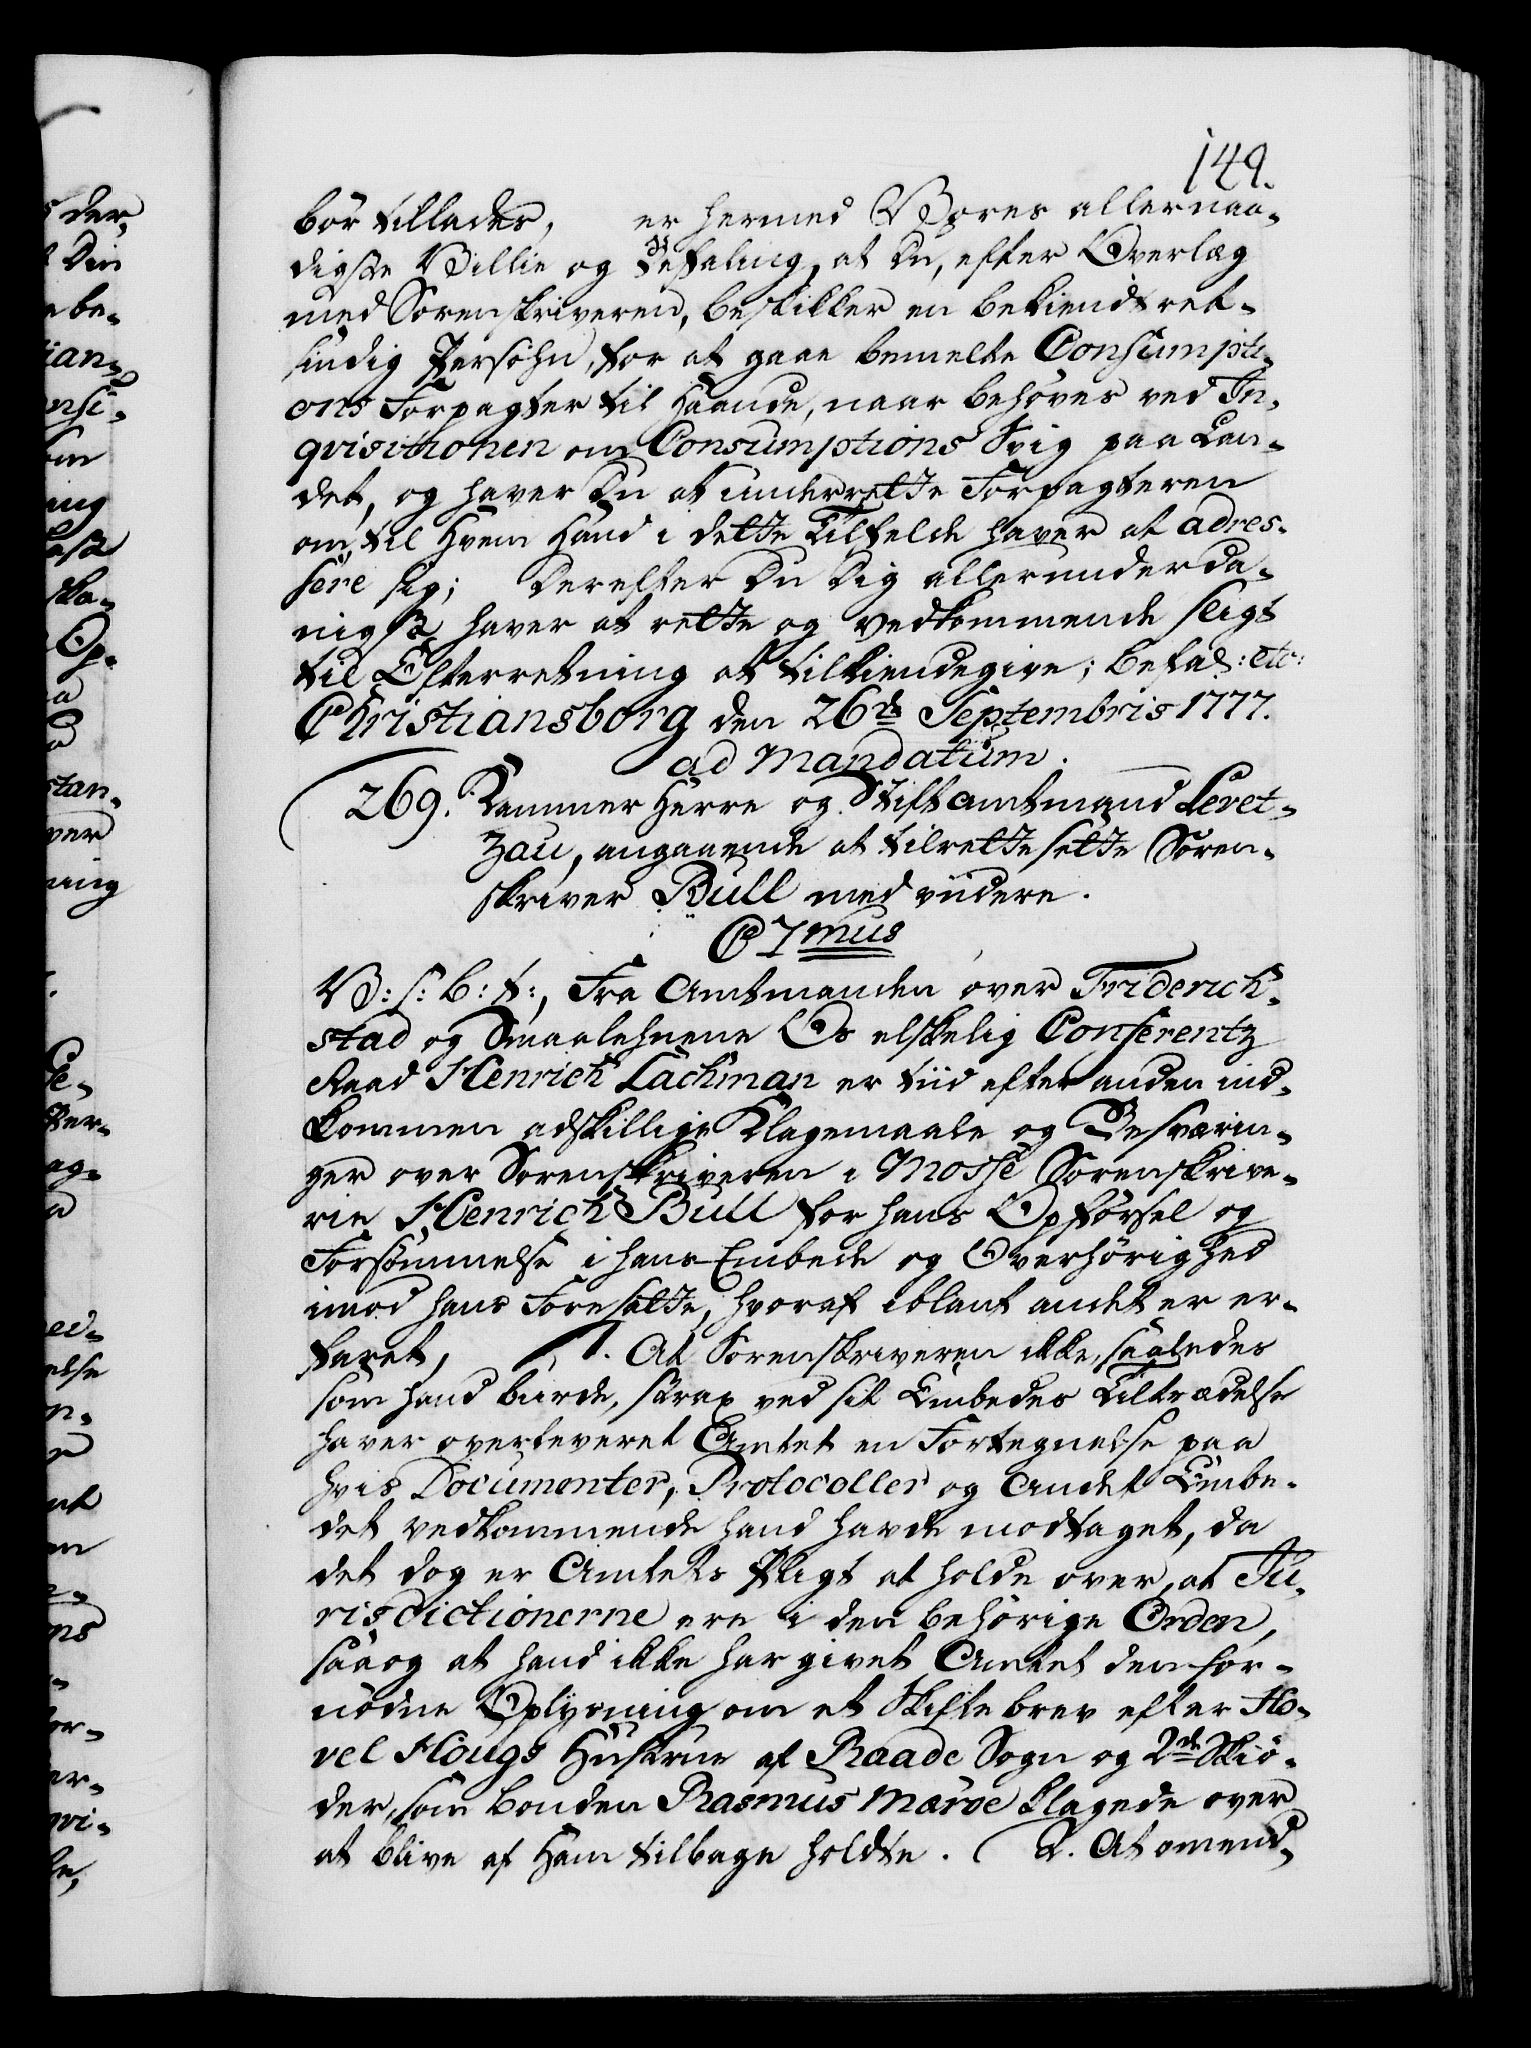 149.
bör tillades, er hermed Vores allernaa-
digste Villie og Befaling, at Du, efter Overlæg
med Sorenskriveren, beskikker en bekiendt ret-
sindig Persohn, for at gaae bemelte Consumpti-
ons Forpagter til Haande, naar behöves ved In-
qvisitionen om Consumptions Svig paa Lan-
det, og haver Du at underrette Forpagteren
om, til hvem hand i dette Tilfelde haver at adres-
sere sig; Derefter Du Dig allerunderda-
nigst haver at rette og vedkommende sligt
til Efterretning at tilkiendegive; befal: etc:
Christiansborg den 26de Septembris 1777.
ad Mandatum.
269. Kammer Herre og Stiftamtmand Levet-
zau, angaaende at tilrettesette Soren-
skriver Bull med viidere.
C 7mus
V: s: b: t:, Fra Amtmanden over Friderich-
stad og Smaalehnene Os elskelig Conferentz
Raad Henrich Lachman er tiid efter anden ind-
kommen adskillige Klagemaale og Besværin-
ger over Sorenskriveren i Mosse Sorenskrive-
rie Henrich Bull for hans Opförsel og
Forsömmelse i hans Embede og Overhörighed
imod hans Foresatte, hvoraf iblant andet er er-
faret, 1. At Sorenskriveren ikke, saaledes
som hand burde, strax ved sit Embedes Tiltrædelse
haver overleveret Amtet en Fortegnelse paa
hvis Documenter, Protocoller og Andet Embe-
det vedkommende hand havde modtaget, da
det dog er Amtets Pligt at holde over, at Ju-
risdictionerne ere i den behörige Orden,
saa og at hand ikke har givet Amtet den for-
nödne Oplysning om et Skiftebrev efter Ho-
vel Hougs Hustrue af Raade Sogn og 2de Skiö-
der, som Bonden Rasmus Maroe klagede over
at blive af Ham tilbage holdte. 2. At omend-